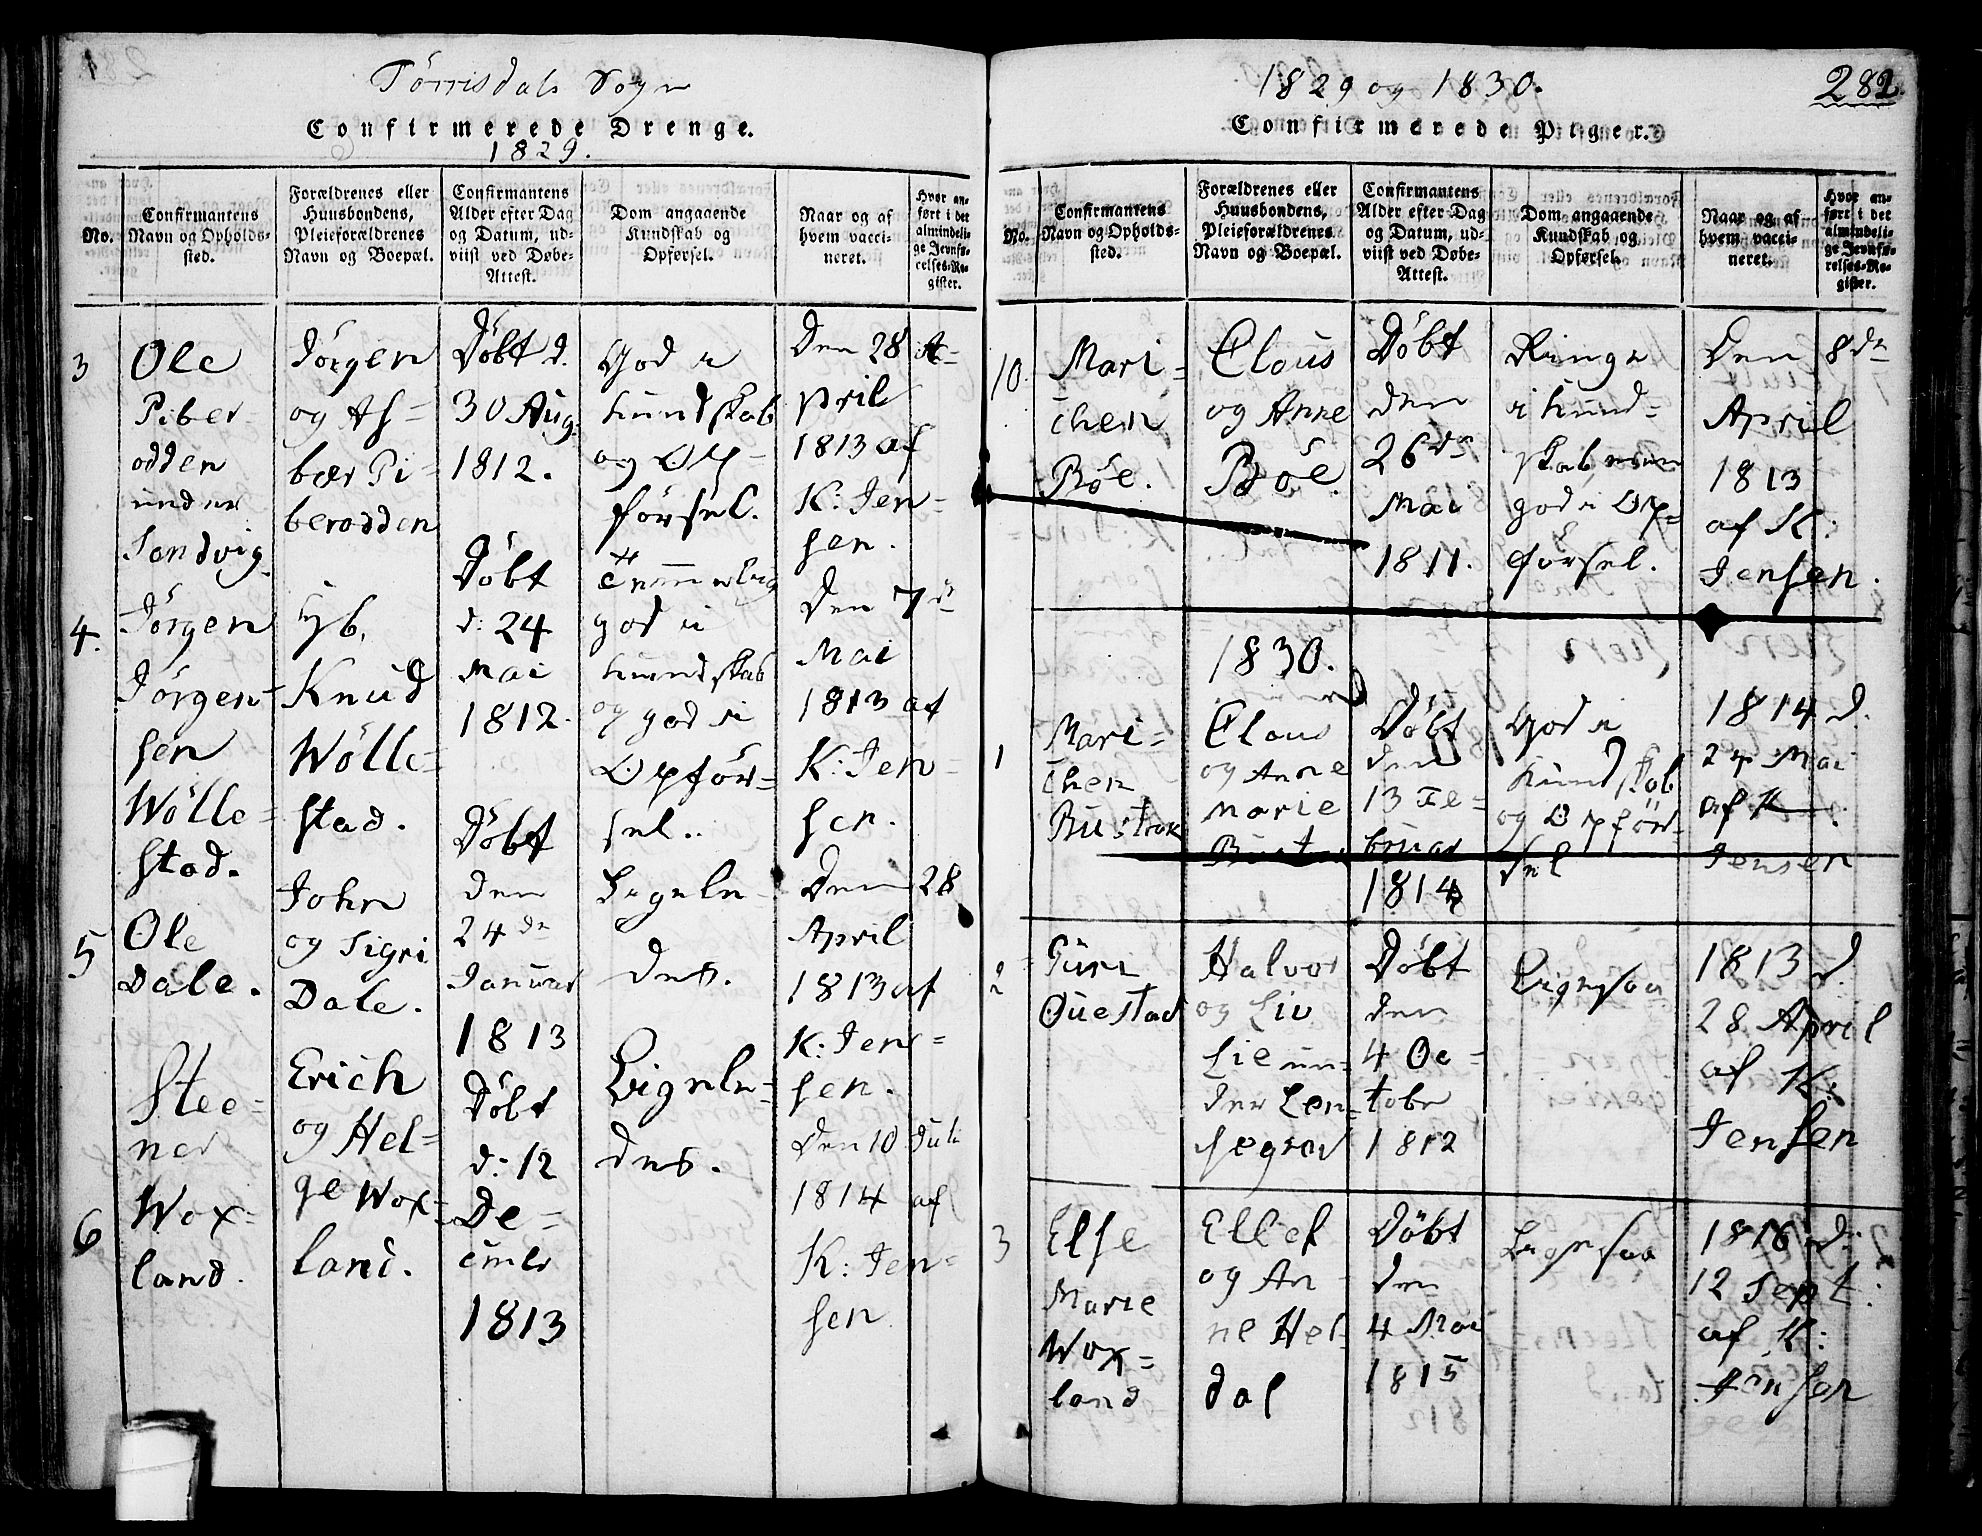 Törrisdals Sogn
Confirmerede Drenge.
1829.
No.
Confirmantens Navn og Opholds-sted.
Forældrenes eller Huusbondens, Pleieforældrenes Navn og Boepæl.
Confirmantens Alder efter Dag og Datum, ud-viist ved Døbe-Attest.
Dom angaaende Kundskab og Opførsel.
Naar og af hvem vacci-neret.
Hvor an-ført i det almindeli-ge Jevnfø-relses-Re-gister.
3
Ole
Piber-
odden
under
Sandvig.
Jörgen
og As=
bær Pi-
berodden
Döbt d.
30 Aug.
1812.
God i
Kundskab
og Op-
försel.
Den 28 A-
pril
1813 af
K: Jen-
sen.
4.
Jörgen
Jörgen-
sen
Wölle=
stad.
Knud
Wölle=
stad.
Döbt
d: 24
Mai
1812.
Temmelig
god i
Kundskab
og god i
Opför-
sel.
Den 7de
Mai
1813 af
K: Jen-
sen.
5
Ole
Dale.
John
og Sigri
Dale.
Döbt
den
24de
Januar
1813
Ligele-
des.
Den 28
April
1813 af
K: Jen-
sen.
6
Stee=
ner
Wox=
land.
Erich
og Hel=
ge Wox-
land.
Döbt
d: 12
De=
cmbr
1813
Ligele-
des.
Den 10 Juli
1814 af
K: Jen-
sen
1829 og 1830.
282.
Confirmerede Piger.
No.
Confirmantens Navn og Opholds-sted.
Forældrenes eller Huusbondens, Pleieforældrenes Navn og Boepæl.
Confirmantens Alder efter Dag og Datum, ud-viist ved Døbe-Attest.
Dom angaaende Kundskab og Opførsel.
Naar og af hvem vacci-neret.
Hvor an-ført i det almindeli-ge Jevnfø-relses-Re-gister.
10.
Mari=
chen
Böe.
Claus
og Anne
Böe.
Döbt
den
26de
Mai
1811.
Ringe
i Kund=
skab men
god i Op=
försel.
Den 8de
April
1813
af K:
Jensen.
1830.
1
Mari=
chen
Claus
og Anne
Marie
Döbt
den
13 Fe-
bruar
1814
God i
Kundskab
og Opför-
sel
1814 d.
27 Mai
af K.
Jensen
2
Guri
Questad
Halvor
og Liv
Lie un-
der Len-
segrav
Döbt
den
4 Oc-
tobr
1812
Ligesaa
1813 d.
28 April
af K:
Jensen
3
Else
Marie
Wox=
land
Ellef
og An-
ne Hel-
dal
Döbt
den
4 Mai
1815
Ligesaa
1816 d:
12 Sept:
af K:
Jensen